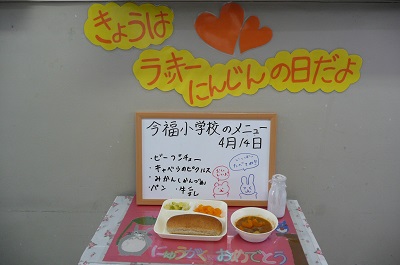 きょうは
ラッキー
にんじんの日だよ
今福小学校のメニュー
4月14日
・ビーフシチュー
・キャベツのピクルス
・みかん(かんづめ)
・パン ・牛にゅう
にゅうがく おめでとう